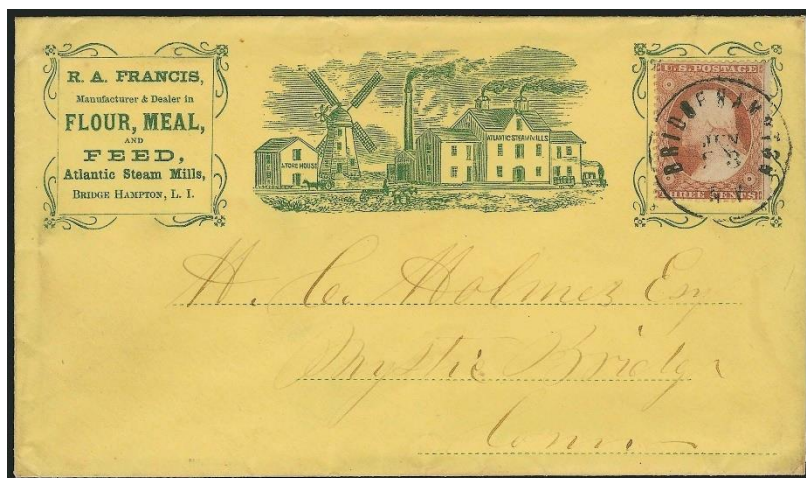 R. A. FRANCIS,
Manufacturer & Dealer in
FLOUR, MEAL,
AND
FEED,
Atlantic Steam Mills,
BRIDGE HAMPTON, L. I.
STORE HOUSE
ATLANTIC STEAM MILLS
U.S. POSTAGE
THREE CENTS
BRIDGEHAMPTON
N.Y.
H. C. Holmes Esq
Mystic Bridge
Conn